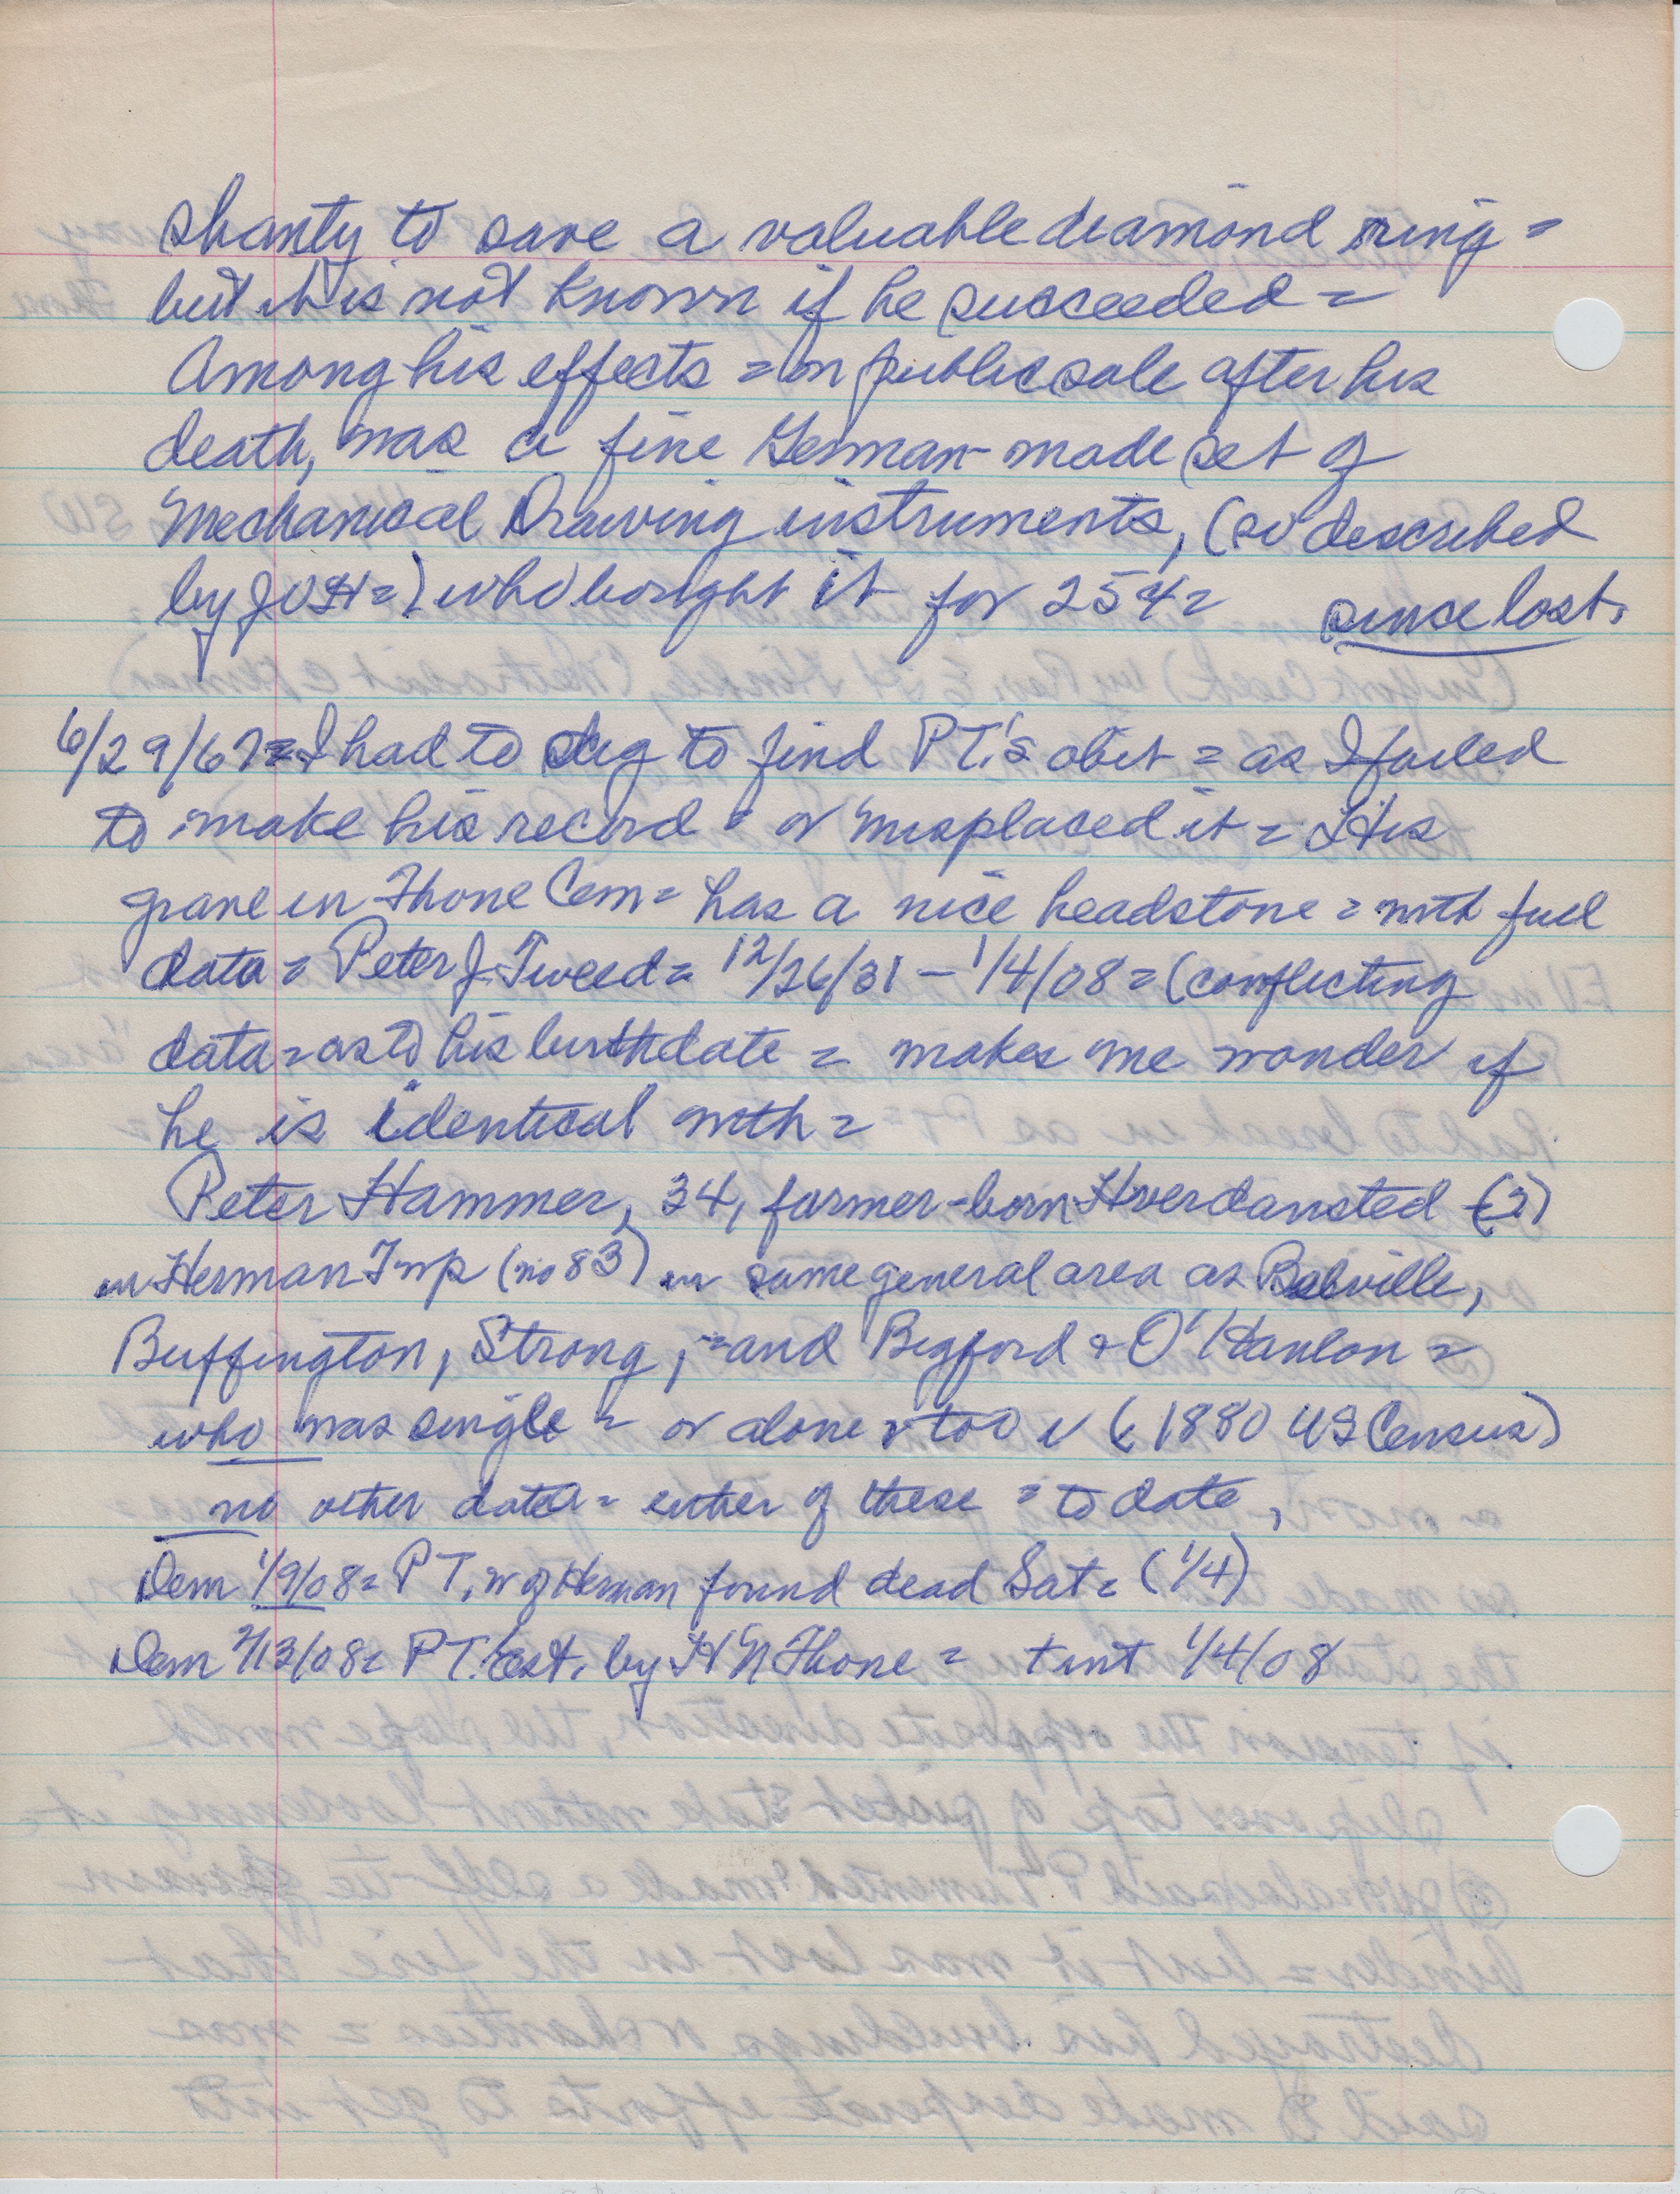 shanty to save a valuable diamond ring =
but it is not known if he succeeded =
Among his effects = on public sale after his
death, was a fine German-made set of
Mechanical Drawing instruments, (so described
by JVSH =) who bought it for 25¢ = since lost.
6/29/67 = I had to dig to find PT.'s obit = as I failed
to make his record = or misplaced it = His
grave in Thone Cem = has a nice headstone = with full
data = Peter J Tweed = 12/26/31 - 1/4/08 = (conflicting
data = as to his birthdate = makes me wonder if
he is identical with =
Peter Hammer, 34, farmer - born Hverdansted (?)
in Herman Twp (no 83) in same general area as Babville,
Buffington, Strong, = and Bigford & O'Hanlon =
who was single = or alone too (1880 US Census)
no other data = either of these = to date,
Dem 1/9/08 = PT, w of Herman found dead Sat = (1/4)
Dem 2/13/08 = PT. Est. by H N Thone = tint 1/4/08